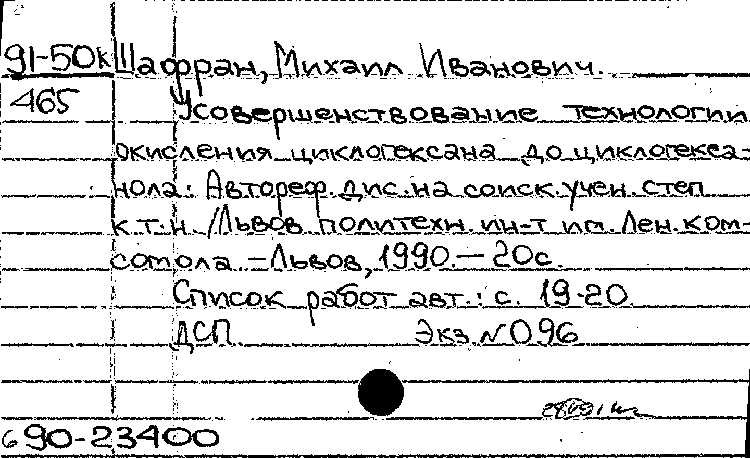 91-50к Шафран, Михаил Иванович.
465 Усовершенствование технологии
окисления циклогексана до циклогекса-
нола: Автореф. дис. на соиск. учен. степ
к.т.н. /Львов. политехн. ин-т им. Лен. ком-
сомола. – Львов, 1990. – 20с.
Список работ авт.: с. 19-20
ДСП. Экз. N 096
690-23400